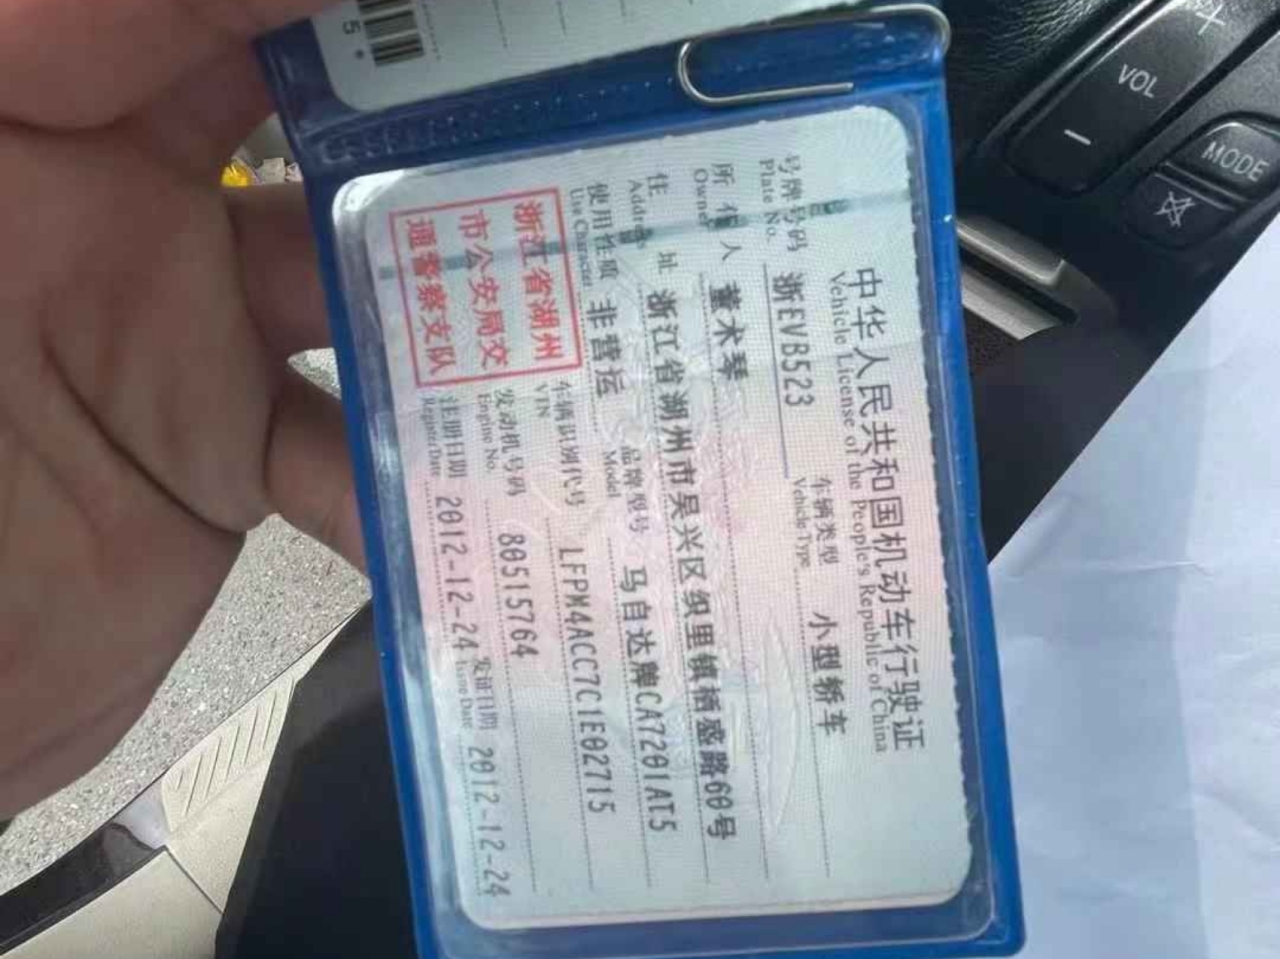 中华人民共和国机动车行驶证
Vehicle License of the People's Republic of China
号牌号码 浙EVB523 车辆类型 小型轿车
Plate No. Vehicle Type
所有人 董术琴
Owner
住址 浙江省湖州市吴兴区织里镇栖盛路60号
Address
使用性质 非营运 品牌型号 马自达牌CA7201AT5
Use Character Model
浙江省湖州
市公安局交
通警察支队
车辆识别代号 LFPM4ACC7C1E02715
VIN
发动机号码 80515764
Engine No.
注册日期 2012-12-24 发证日期 2012-12-24
Register Date Issue Date
5*
+
VOL
−
MODE